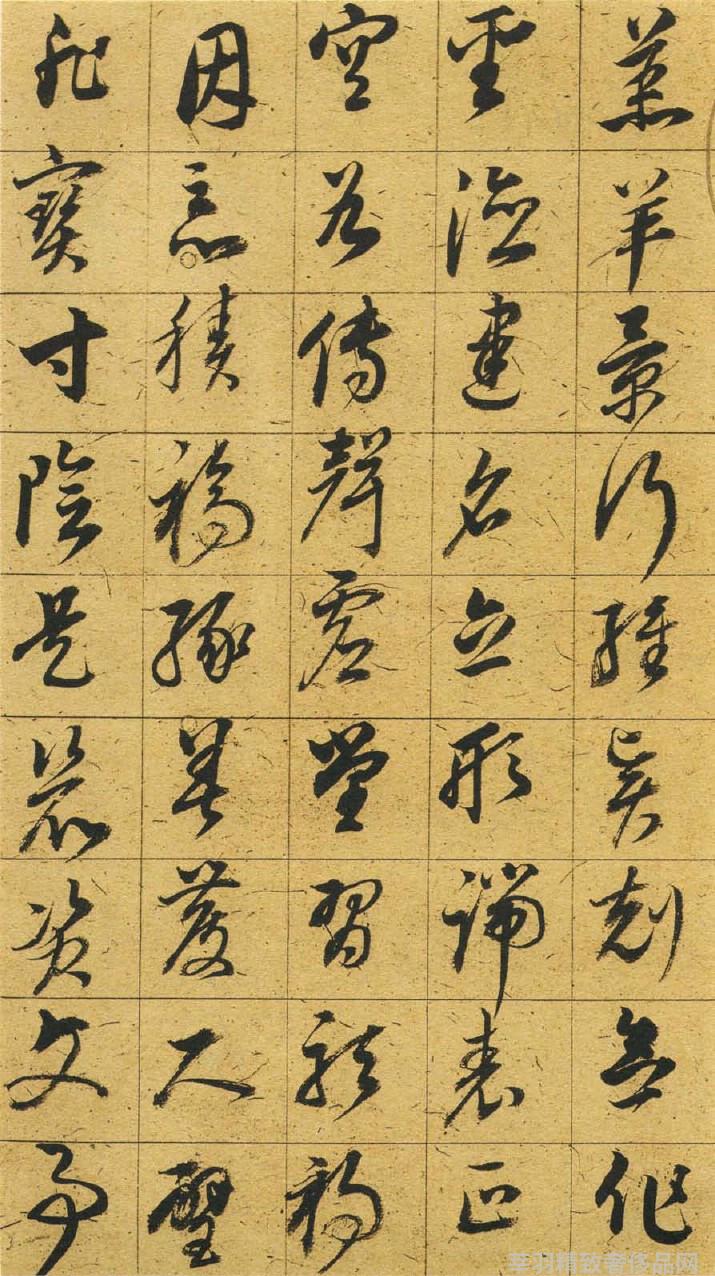 羔羊景行維賢剋念作
聖德建名立形端表正
空谷傳聲虛堂習聽禍
因惡積福緣善慶尺璧
非寶寸陰是競資父事
莘羽精致奢侈品网